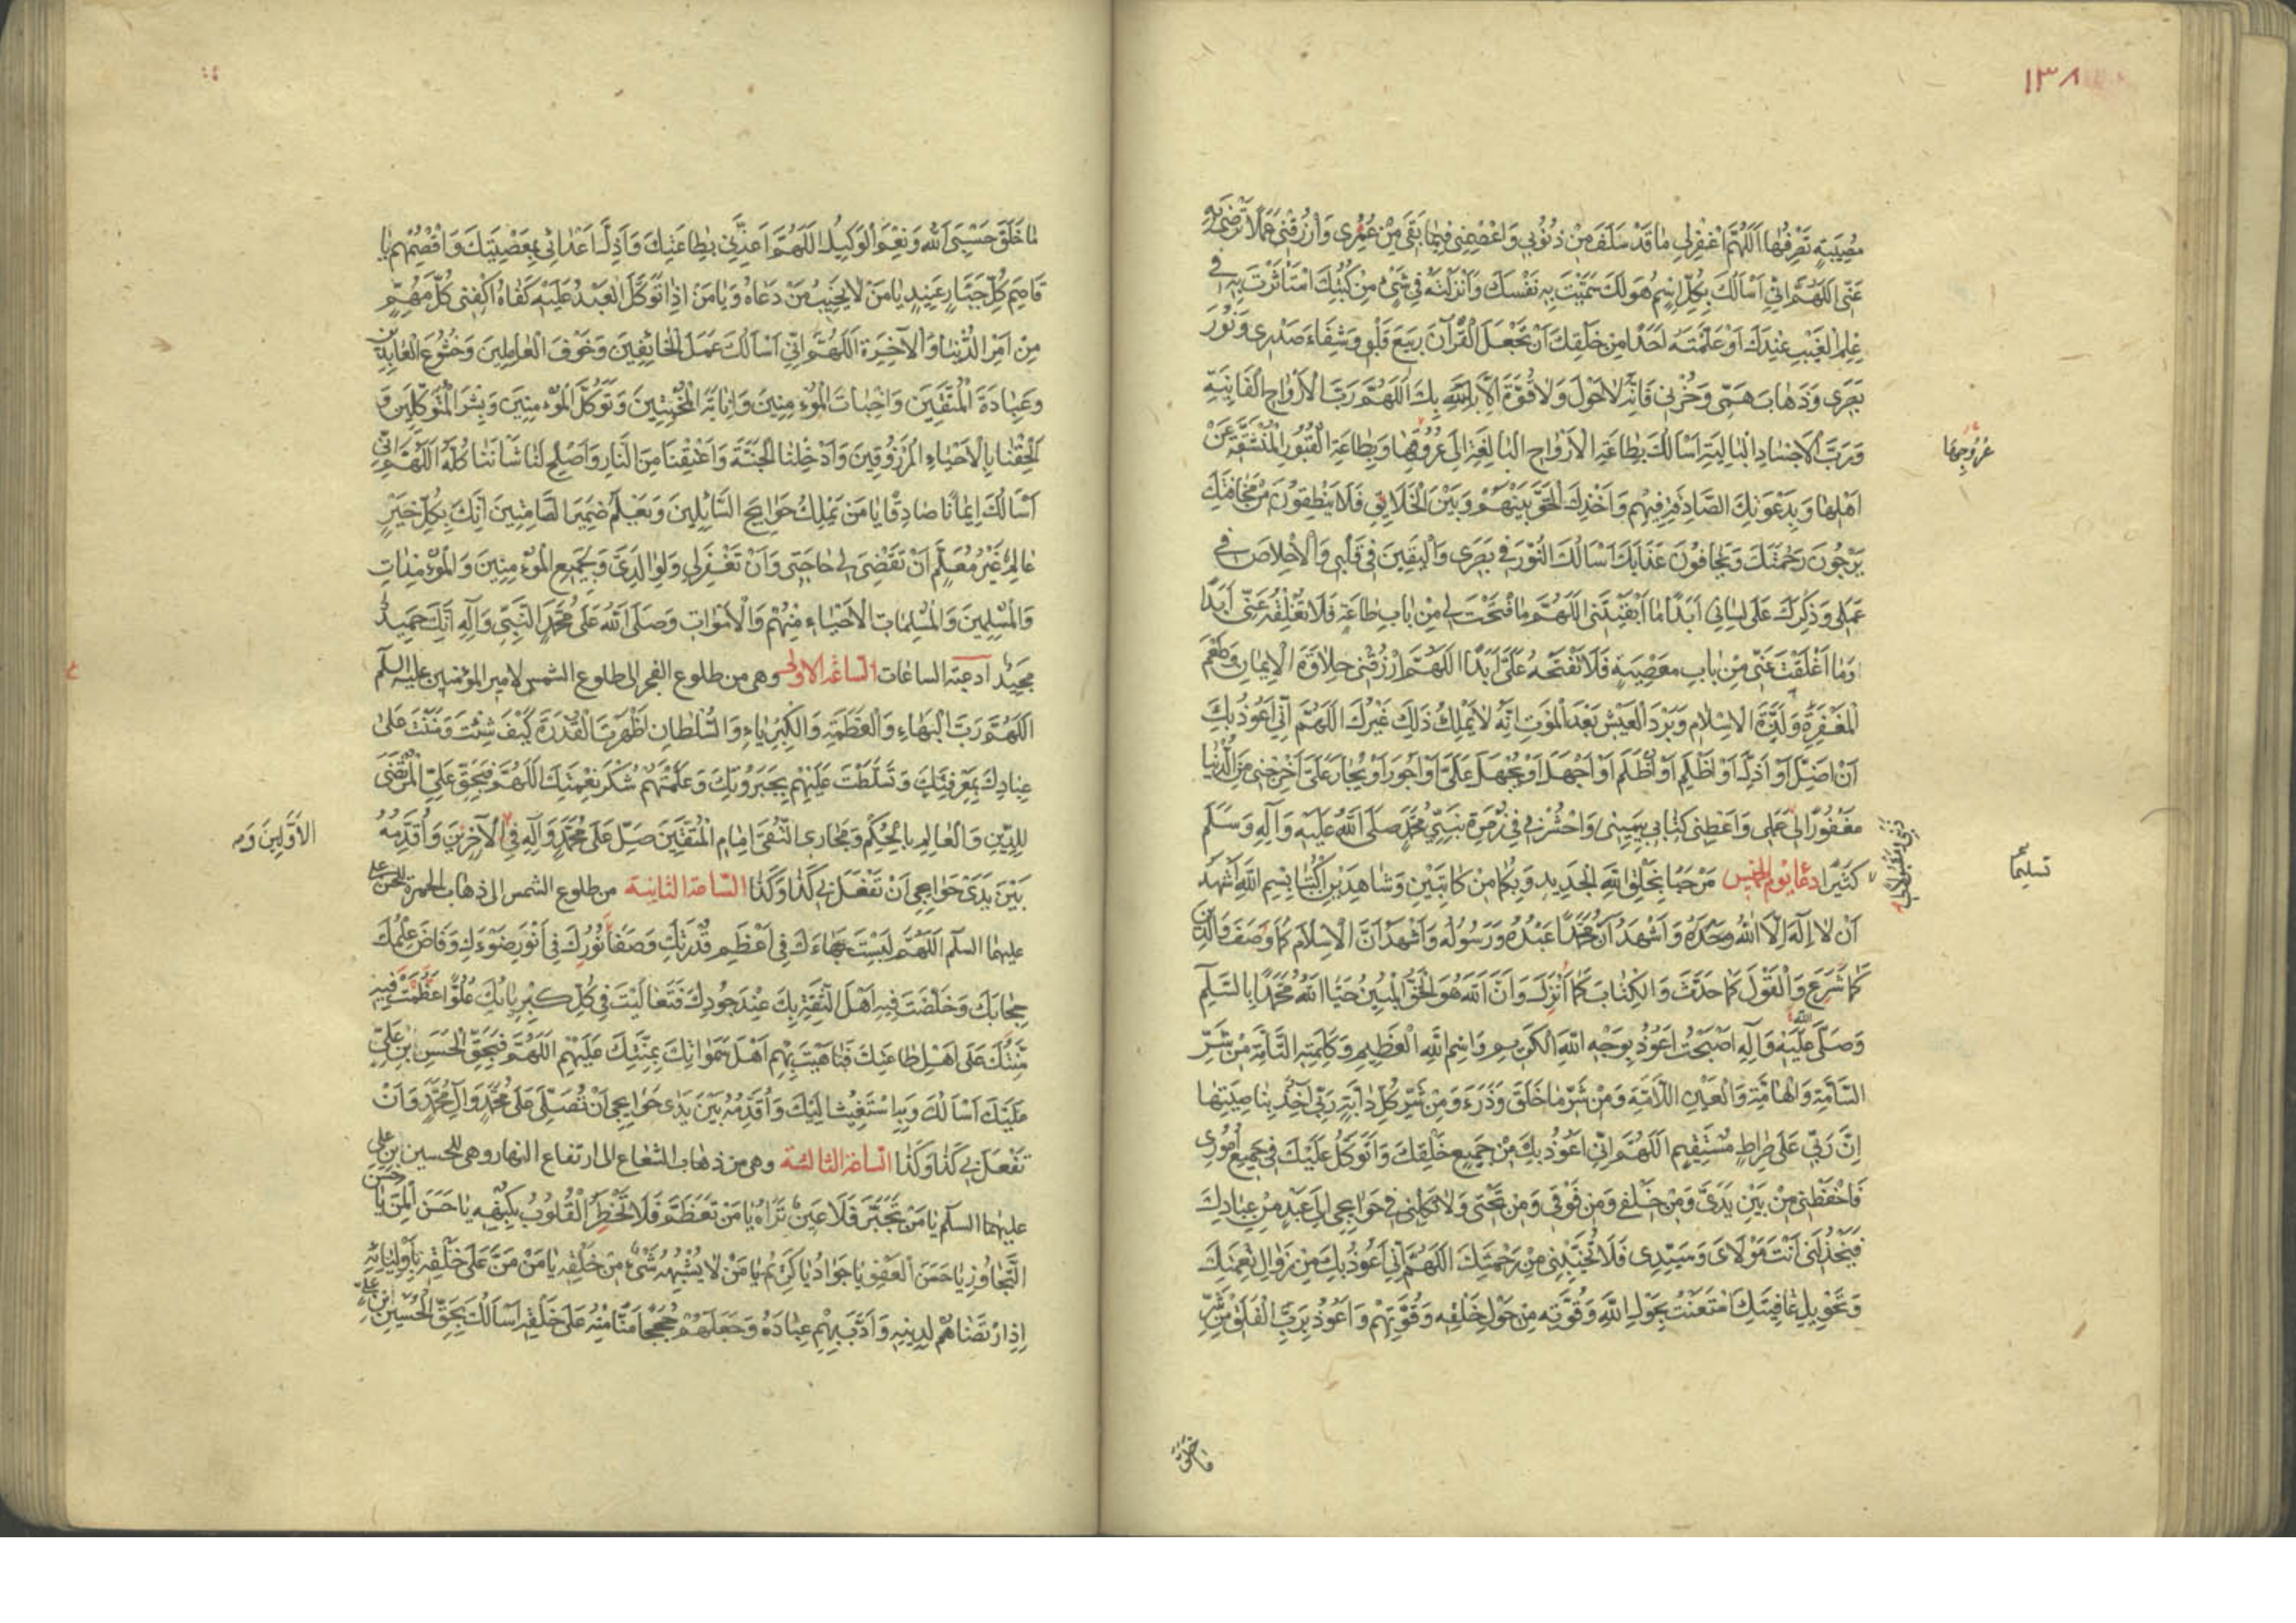 ١٣٨
مُصِيبَةٍ تَصْرِفُهَا اَللّهُمَّ اغْفِرْلِي مَا قَدْ سَلَفَ مِنْ ذُنُوبِي وَاعْصِمْنِي فِيمَا بَقِيَ مِنْ عُمْرِي وَارْزُقْنِي عَمَلًا تَرْضَى بِهِ
عَنِّي اللّهُمَّ اِنِّي اَسْاَلُكَ بِكُلِّ اسْمٍ هُوَ لَكَ سَمَّيْتَ بِهِ نَفْسَكَ وَاَنْزَلْتَهُ فِي شَيْءٍ مِنْ كُتُبِكَ اسْتَأْثَرْتَ بِهِ فِي
عِلْمِ الْغَيْبِ عِنْدَكَ اَوْ عَلَّمْتَهُ اَحَدًا مِنْ خَلْقِكَ اَنْ تَجْعَلَ الْقُرْآنَ رَبِيعَ قَلْبِي وَشِفَاءَ صَدْرِي وَنُورَ
بَصَرِي وَذَهَابَ هَمِّي وَحُزْنِي فَاِنَّهُ لَا حَوْلَ وَلَا قُوَّةَ اِلَّا بِكَ اَللّهُمَّ رَبَّ الْاَرْوَاحِ الْفَانِيَةِ
وَرَبَّ الْاَجْسَادِ الْبَالِيَةِ اَسْاَلُكَ بِطَاعَةِ الْاَرْوَاحِ الْبَالِغَةِ اِلَى عُرُوقِهَا وَبِطَاعَةِ الْقُبُورِ الْمُنْشَقَّةِ عَنْ
عُرُوجِهَا
اَهْلِهَا وَبِدَعْوَتِكَ الصَّادِقَةِ فِيهِمْ وَاَخْذِكَ الْحَقَّ بَيْنَهُمْ وَبَيْنَ الْخَلَائِقِ فَلَا يَنْطِقُونَ مِنْ مَخَافَتِكَ
يَرْجُونَ رَحْمَتَكَ وَيَخَافُونَ عَذَابَكَ اَسْاَلُكَ النُّورَ فِي بَصَرِي وَالْيَقِينَ فِي قَلْبِي وَالْاِخْلَاصَ فِي
عَمَلِي وَذِكْرَكَ عَلَى لِسَانِي اَبَدًا مَا اَبْقَيْتَنِي اللّهُمَّ مَا فَتَحْتَ لِي مِنْ بَابِ طَاعَةٍ فَلَا تُغْلِقْهُ عَنِّي اَبَدًا
وَمَا اَغْلَقْتَ عَنِّي مِنْ بَابِ مَعْصِيَةٍ فَلَا تَفْتَحْهُ عَلَيَّ اَبَدًا اللّهُمَّ ارْزُقْنِي حَلَاوَةَ الْاِيمَانِ وَطَعْمَ
الْمَغْفِرَةِ وَلَذَّةَ الْاِسْلَامِ وَبَرْدَ الْعَيْشِ بَعْدَ الْمَوْتِ اِنَّهُ لَا يَمْلِكُ ذَلِكَ غَيْرُكَ اللّهُمَّ اِنِّي اَعُوذُ بِكَ
اَنْ اَضِلَّ اَوْ اَذِلَّ اَوْ اَظْلِمَ اَوْ اُظْلَمَ اَوْ اَجْهَلَ اَوْ يُجْهَلَ عَلَيَّ اَوْ اَجُورَ اَوْ يُجَارَ عَلَيَّ اَخْرِجْنِي مِنَ الدُّنْيَا
مَغْفُورًا لِي عَمَلِي وَاَعْطِنِي كِتَابِي بِيَمِينِي وَاحْشُرْنِي فِي زُمْرَةِ نَبِيِّي مُحَمَّدٍ صَلَّى اللهُ عَلَيْهِ وَآلِهِ وَسَلَّمَ
كَثِيرًا دعا يوم الخميس مَرْحَبًا بِخَلْقِ اللهِ الْجَدِيدِ وَبِكُمَا مِنْ كَاتِبَيْنِ وَشَاهِدَيْنِ اُكْتُبَا بِسْمِ اللهِ اَشْهَدُ
تسليما
اَنْ لَا اِلَهَ اِلَّا اللهُ وَحْدَهُ وَاَشْهَدُ اَنَّ مُحَمَّدًا عَبْدُهُ وَرَسُولُهُ وَاَشْهَدُ اَنَّ الْاِسْلَامَ كَمَا وَصَفَ وَالدِّينَ
كَمَا شَرَعَ وَالْقَوْلَ كَمَا حَدَّثَ وَالْكِتَابَ كَمَا اَنْزَلَ وَاَنَّ اللهَ هُوَ الْحَقُّ الْمُبِينُ حَيَّا اللهُ مُحَمَّدًا بِالسَّلَامِ
وَصَلَّى اللهُ عَلَيْهِ وَآلِهِ اَصْبَحْتُ اَعُوذُ بِوَجْهِ اللهِ الْكَرِيمِ وَاسْمِ اللهِ الْعَظِيمِ وَكَلِمَتِهِ التَّامَّةِ مِنْ شَرِّ
السَّامَّةِ وَالْهَامَّةِ وَالْعَيْنِ اللَّامَّةِ وَمِنْ شَرِّ مَا خَلَقَ وَذَرَءَ وَمِنْ شَرِّ كُلِّ دَابَّةٍ رَبِّي آخِذٌ بِنَاصِيَتِهَا
اِنَّ رَبِّي عَلَى صِرَاطٍ مُسْتَقِيمٍ اَللّهُمَّ اِنِّي اَعُوذُ بِكَ مِنْ جَمِيعِ خَلْقِكَ وَاَتَوَكَّلُ عَلَيْكَ فِي جَمِيعِ اُمُورِي
فَاحْفَظْنِي مِنْ بَيْنِ يَدَيَّ وَمِنْ خَلْفِي وَمِنْ فَوْقِي وَمِنْ تَحْتِي وَلَا تَكِلْنِي فِي حَوَائِجِي اِلَى عَبْدٍ مِنْ عِبَادِكَ
فَيَخْذُلَنِي اَنْتَ مَوْلَايَ وَسَيِّدِي فَلَا تُخَيِّبْنِي مِنْ رَحْمَتِكَ اَللّهُمَّ اِنِّي اَعُوذُ بِكَ مِنْ زَوَالِ نِعْمَتِكَ
وَتَحْوِيلِ عَافِيَتِكَ اسْتَعَنْتُ بِحَوْلِ اللهِ وَقُوَّتِهِ مِنْ حَوْلِ خَلْقِهِ وَقُوَّتِهِمْ وَاَعُوذُ بِرَبِّ الْفَلَقِ مِنْ شَرِّ
مَا خَلَقَ
مَا خَلَقَ حَسْبِيَ اللهُ وَنِعْمَ الْوَكِيلُ اَللّهُمَّ اَعِزَّنِي بِطَاعَتِكَ وَاَذِلَّ اَعْدَائِي بِمَعْصِيَتِكَ وَاقْصِمْهُمْ يَا
قَاصِمَ كُلِّ جَبَّارٍ عَنِيدٍ يَا مَنْ لَا يُخَيِّبُ مَنْ دَعَاهُ وَيَا مَنْ اِذَا تَوَكَّلَ الْعَبْدُ عَلَيْهِ كَفَاهُ اكْفِنِي كُلَّ مُهِمٍّ
مِنْ اَمْرِ الدُّنْيَا وَالْآخِرَةِ اَللّهُمَّ اِنِّي اَسْاَلُكَ عَمَلَ الْخَائِفِينَ وَخَوْفَ الْعَامِلِينَ وَخُشُوعَ الْعَابِدِينَ
وَعِبَادَةَ الْمُتَّقِينَ وَاِخْبَاتَ الْمُؤْمِنِينَ وَاِنَابَةَ الْمُخْبِتِينَ وَتَوَكُّلَ الْمُؤْمِنِينَ وَبِشْرَ الْمُتَوَكِّلِينَ وَ
اَلْحِقْنَا بِالْاَحْيَاءِ الْمَرْزُوقِينَ وَاَدْخِلْنَا الْجَنَّةَ وَاَعْتِقْنَا مِنَ النَّارِ وَاَصْلِحْ لَنَا شَاْنَنَا كُلَّهُ اَللّهُمَّ اِنِّي
اَسْاَلُكَ اِيمَانًا صَادِقًا يَا مَنْ يَمْلِكُ حَوَائِجَ السَّائِلِينَ وَيَعْلَمُ ضَمِيرَ الصَّامِتِينَ اِنَّكَ بِكُلِّ خَيْرٍ
عَالِمٌ غَيْرُ مُعَلَّمٍ اَنْ تَقْضِيَ لِي حَاجَتِي وَاَنْ تَغْفِرَ لِي وَلِوَالِدَيَّ وَلِجَمِيعِ الْمُؤْمِنِينَ وَالْمُؤْمِنَاتِ
وَالْمُسْلِمِينَ وَالْمُسْلِمَاتِ الْاَحْيَاءِ مِنْهُمْ وَالْاَمْوَاتِ وَصَلَّى اللهُ عَلَى مُحَمَّدٍ النَّبِيِّ وَآلِهِ اِنَّكَ حَمِيدٌ
مَجِيدٌ ادعية الساعات الساعة الاولى وهى من طلوع الفجر الى طلوع الشمس لامير المؤمنين عليه السلم
اَللّهُمَّ رَبَّ الْبَهَاءِ وَالْعَظَمَةِ وَالْكِبْرِيَاءِ وَالسُّلْطَانِ اَظْهَرْتَ الْقُدْرَةَ كَيْفَ شِئْتَ وَمَنَنْتَ عَلَى
عِبَادِكَ بِمَعْرِفَتِكَ وَتَسَلَّطْتَ عَلَيْهِمْ بِجَبَرُوتِكَ وَعَلَّمْتَهُمْ شُكْرَ نِعْمَتِكَ اَللّهُمَّ فَبِحَقِّ عَلِيٍّ الْمُرْتَضَى
لِلدِّينِ وَالْعَالِمِ بِالْحِكَمِ وَمَجَارِي التُّقَى اِمَامِ الْمُتَّقِينَ صَلِّ عَلَى مُحَمَّدٍ وَآلِهِ فِي الْآخِرِينَ وَاُقَدِّمُهُ
الْاَوَّلِينَ وَ
بَيْنَ يَدَيْ حَوَائِجِي اَنْ تَفْعَلَ بِي كَذَا وَكَذَا الساعة الثانية من طلوع الشمس الى ذهاب الحمرة للحسن بن على
عليهما السلم اَللّهُمَّ لَبِسْتَ بَهَاءَكَ فِي اَعْظَمِ قُدْرَتِكَ وَصَفَا نُورُكَ فِي اَنْوَرِ ضَوْءِكَ وَفَاضَ عِلْمُكَ
حِجَابَكَ وَخَلَّصْتَ فِيهِ اَهْلَ الثِّقَةِ بِكَ عِنْدَ جُودِكَ فَتَعَالَيْتَ فِي كِبْرِيَائِكَ عُلُوًّا عَظُمَتْ فِيهِ
مِنَّتُكَ عَلَى اَهْلِ طَاعَتِكَ فَبَاهَيْتَ بِهِمْ اَهْلَ سَمَوَاتِكَ بِمِنَّتِكَ عَلَيْهِمْ اَللّهُمَّ فَبِحَقِّ الْحَسَنِ بْنِ عَلِيٍّ
عَلَيْكَ اَسْاَلُكَ وَبِهِ اَسْتَغِيثُ اِلَيْكَ وَاُقَدِّمُهُ بَيْنَ يَدَيْ حَوَائِجِي اَنْ تُصَلِّيَ عَلَى مُحَمَّدٍ وَآلِ مُحَمَّدٍ وَاَنْ
تَفْعَلَ بِي كَذَا وَكَذَا الساعة الثالثة وهى من ذهاب الشعاع الى ارتفاع النهار وهى للحسين بن على
عليهما السلم يَا مَنْ تَجَبَّرَ فَلَا عَيْنٌ تَرَاهُ يَا مَنْ تَعَظَّمَ فَلَا تَخْطُرُ الْقُلُوبُ بِكُنْهِهِ يَا حَسَنَ الْمَنِّ يَا حَسَنَ
التَّجَاوُزِ يَا حَسَنَ الْعَفْوِ يَا جَوَادُ يَا كَرِيمُ يَا مَنْ لَا يُشْبِهُهُ شَيْءٌ مِنْ خَلْقِهِ يَا مَنْ مَنَّ عَلَى خَلْقِهِ بِاَوْلِيَائِهِ
اِذِ ارْتَضَاهُمْ لِدِينِهِ وَاَدَّبَ بِهِمْ عِبَادَهُ وَجَعَلَهُمْ حُجَجًا مَنًّا مِنْهُ عَلَى خَلْقِهِ اَسْاَلُكَ بِحَقِّ الْحُسَيْنِ بْنِ عَلِيٍّ